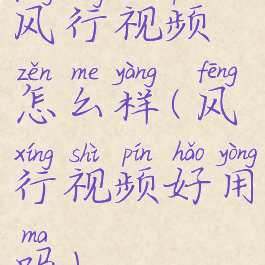 风行视频
zěn me yàng fēng
怎么样(风
xíng shì pín hǎo yòng
行视频好用
ma
吗)